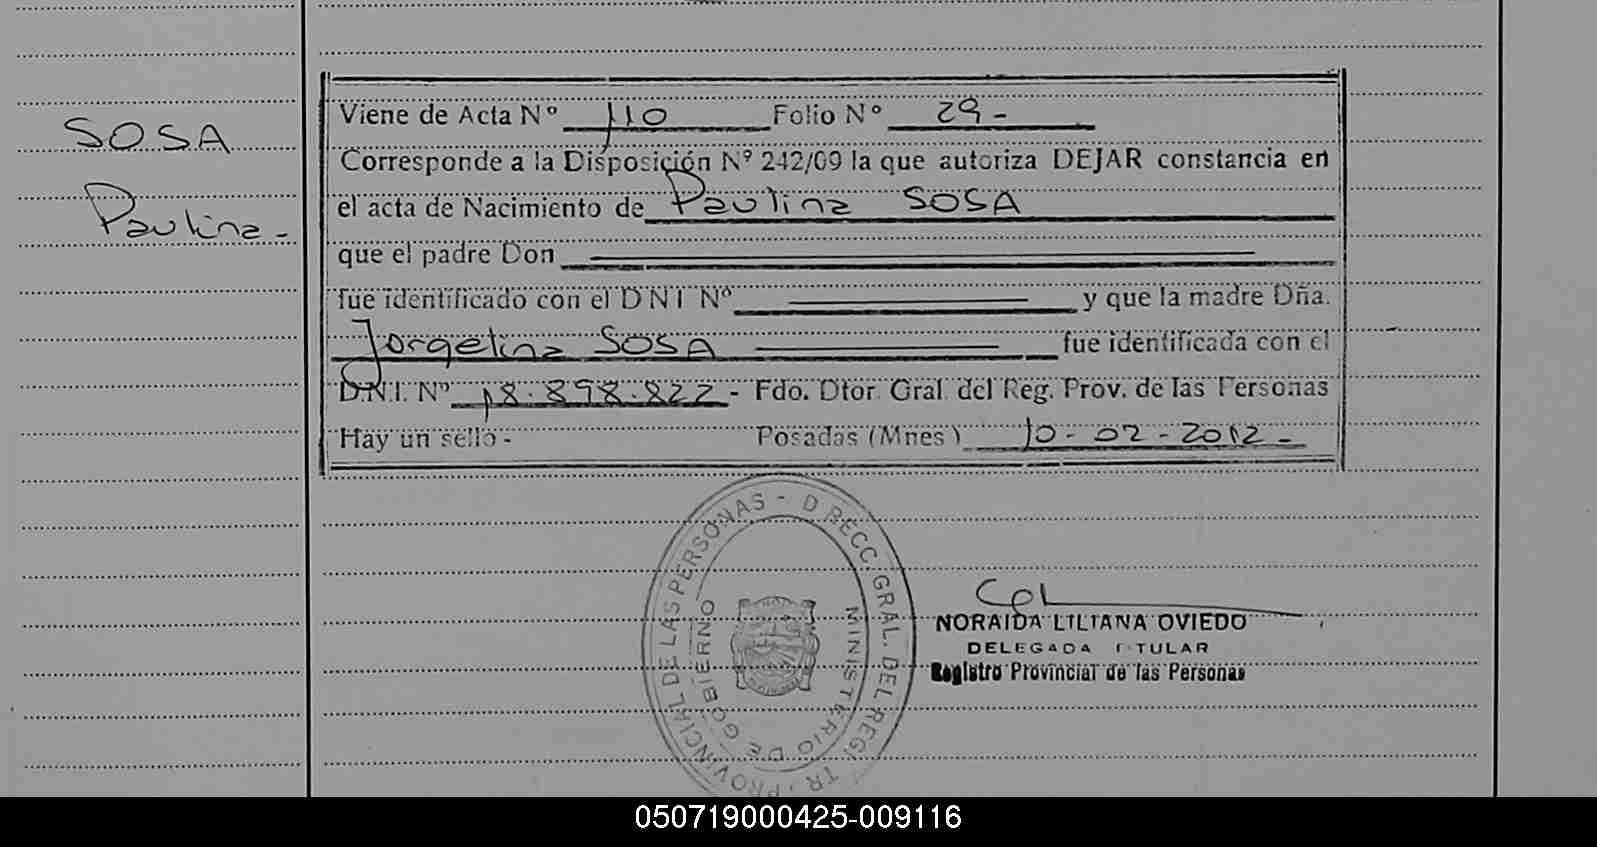 SOSA
Paulina -
Viene de Acta Nº 110 Folio Nº 29 -
Corresponde a la Disposición Nº 242/09 la que autoriza DEJAR constancia en
el acta de Nacimiento de Paulina SOSA
que el padre Don
fue identificado con el D N I Nº y que la madre Dña.
Jorgelina SOSA fue identificada con el
D.N.I. Nº 18.898.822 - Fdo. Dtor Gral del Reg. Prov. de las Personas
Hay un sello - Posadas (Mnes) 10 - 02 - 2012 -
PROVINCIAL DE LAS PERSONAS - DIRECC. GRAL. DEL REGISTR
MINISTERIO DE GOBIERNO
NORAIDA LILIANA OVIEDO
DELEGADA TITULAR
Registro Provincial de las Personas
050719000425-009116